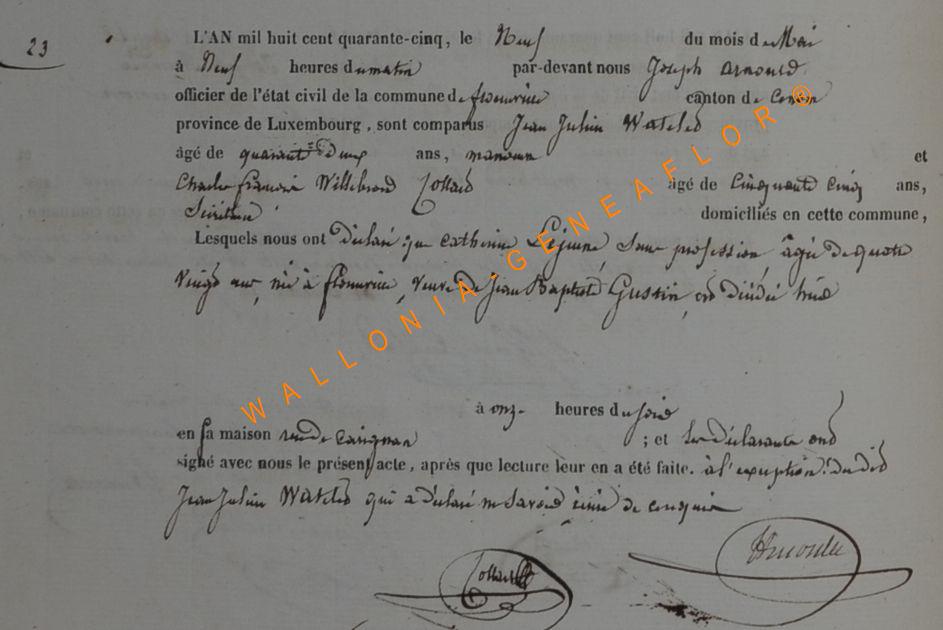 23
L'AN mil huit cent quarante-cinq, le Neuf du mois de Mai
à Neuf heures du matin par-devant nous Joseph Arnould
officier de l'état civil de la commune de florenville canton de
province de Luxembourg, sont comparus Jean Julien Watelet
âgé de quarante deux ans, manœuvre et
Charles françois Willebrord Collard âgé de Cinquante Cinq ans,
domiciliés en cette commune,
Lesquels nous ont déclaré que Catherine Lejeune, Sans profession âgée de quatre
Vingt ans, née à florenville, Veuve de Jean Baptiste Gussin, est décédée
à onze heures du soir
en sa maison rue de Carignan ; et les déclarants ont
signé avec nous le présent acte, après que lecture leur en a été faite. à l'exception du dit
Jean Julien Watelet qui a déclaré ne Savoir écrire de ce requis
Collard
WALLONIA-GENEAFLOR®